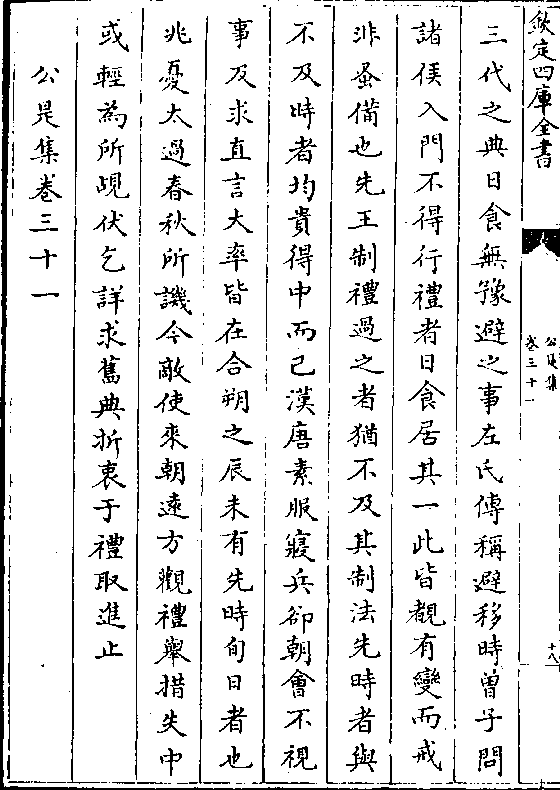 欽定四庫全書
公是集
卷三十一
十八
三代之典日食無豫避之事左氏傳稱避移時曾子問
諸侯入門不得行禮者日食居其一此皆覩有變而戒
非蚤備也先王制禮過之者猶不及其制法先時者與
不及時者均貴得中而已漢唐素服寢兵卻朝會不視
事及求直言大率皆在合朔之辰未有先時旬日者也
兆憂太過春秋所譏今敵使來朝遠方觀禮舉措失中
或輕為所覘伏乞詳求舊典折衷于禮取進止
公是集卷三十一